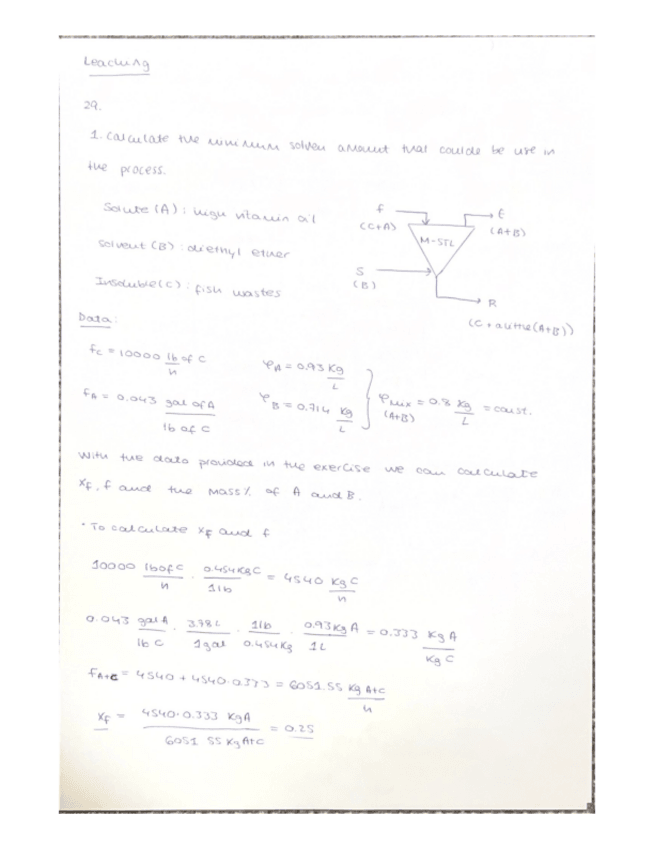 Leaching
29.
1. Calculate the minimum solven amount that coulde be use in
the process.
Solute (A): high vitamin oil
Solvent (B): diethyl ether
Insoluble (C): fish wastes
f
(C+A)
M-STL
E
(A+B)
S
(B)
R
(C + a little (A+B))
Data:
fc = 10000 lb of C / h
fA = 0.043 gal of A / lb of C
φA = 0.93 Kg / L
φB = 0.714 Kg / L
φMix (A+B) = 0.8 Kg / L = const.
With the data provided in the exercise we can calculate
xf, f and the mass% of A and B.
· To calculate xf and f
10000 lb of C / h · 0.454 Kg C / 1 lb = 4540 Kg C / h
0.043 gal A / lb C · 3.78 L / 1 gal · 1 lb / 0.454 Kg · 0.93 Kg A / 1 L = 0.333 Kg A / Kg C
fA+C = 4540 + 4540·0.333 = 6051.55 Kg A+C / h
xf = 4540·0.333 Kg A / 6051 55 Kg A+C = 0.25